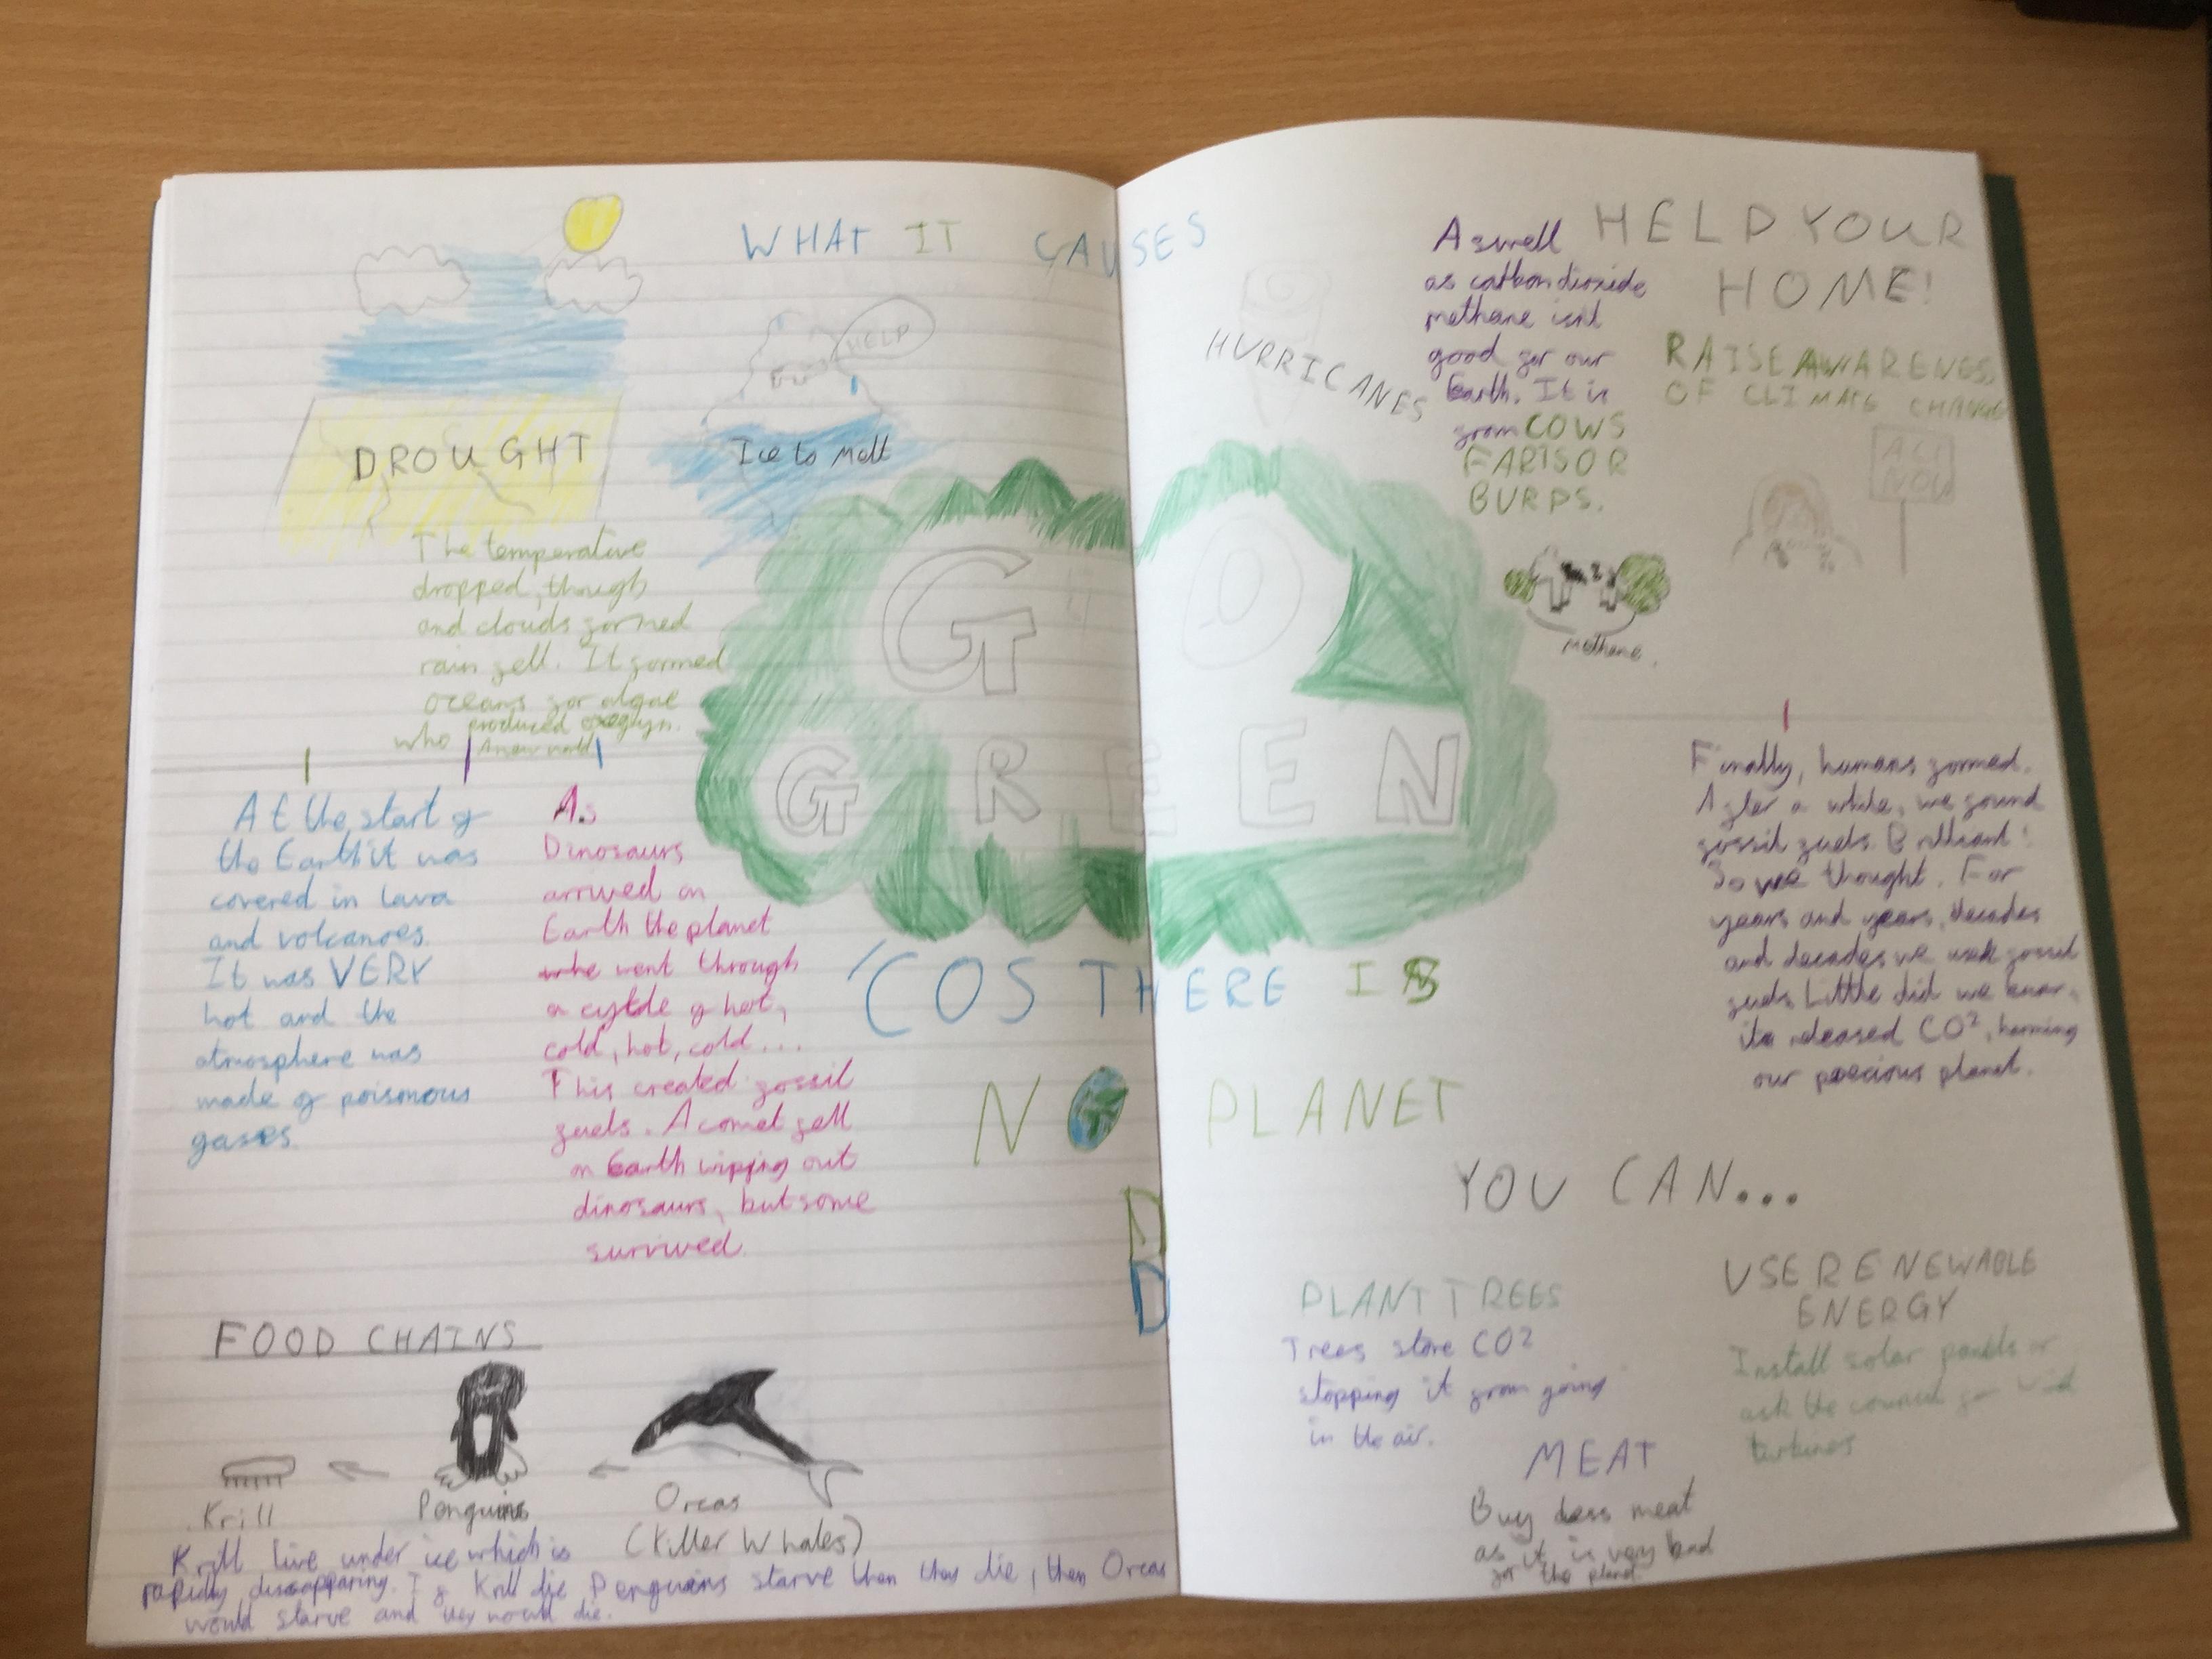 WHAT IT CAUSES
HELP
DROUGHT
Ice to Melt
HURRICANES
The temperature
dropped, though
and clouds formed
rain fell. It formed
oceans for algae
who produced
A new world
At the start of
the Earth it was
covered in lava
and volcanoes.
It was VERY
hot and the
atmosphere was
made of poisonous
gases.
As
Dinosaurs
arrived on
Earth the planet
went through
a cycle of hot,
cold, hot, cold...
This created fossil
fuels. A comet fell
on Earth wipping out
dinosaurs, but some
survived.
GO
GREEN
'COS THERE IS
NO PLANET
B
D
FOOD CHAINS
Krill
Penguins
Orcas
(Killer Whales)
Krill live under ice which is
rapidly dissapparing. If Krill die Penguins starve then they die, then Orcas
would starve and they would die.
Aswell
as carbon dioxide
methane isnt
good for our
Earth. It is
from COWS
FARTS OR
BURPS.
Methane.
HELP YOUR
HOME!
RAISE AWARENESS
OF CLIMATE CHANGE
ACT
NOW
Finally, humans formed.
After a while, we found
fossil fuels. Brilliant!
So we thought. For
years and years, decades
and decades we used fossil
fuels. Little did we know,
it released CO², harming
our precious planet.
YOU CAN...
PLANT TREES
Trees store CO2
stopping it from going
in the air.
USE RENEWABLE
ENERGY
Install solar panels or
ask the council for wind
turbines
MEAT
Buy less meat
as it is very bad
for the planet